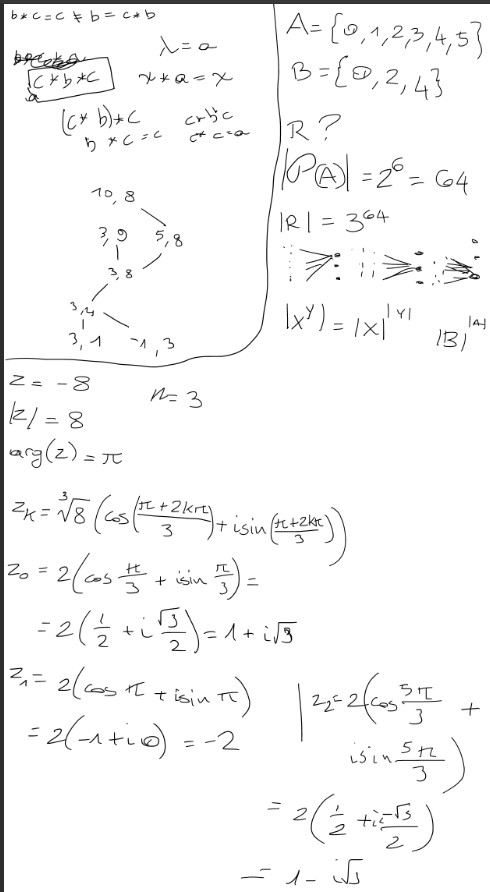 b*c=c ≠ b=c*b
λ=a
c*b*c
a
x*a=x
(c*b)*c
b*c=c
c*b c
c*c=a
10,8
3,9 5,8
3,8
3,4
3,1 -1,3
A={0,1,2,3,4,5}
B={0,2,4}
R?
|P(A)|=2⁶=64
|R|=3⁶⁴
|X^Y)=|X|^|Y| |B|^|A|
z=-8
n=3
|z|=8
arg(z)=π
z_k=∛8(cos(π+2kπ/3)+isin(π+2kπ/3))
z₀=2(cos π/3+isin π/3)=
=2(1/2+i√3/2)=1+i√3
z₁=2(cos π+isin π)
=2(-1+i0)=-2
z₂=2(cos 5π/3+
isin 5π/3)
=2(1/2+i-√3/2)
=1-i√3